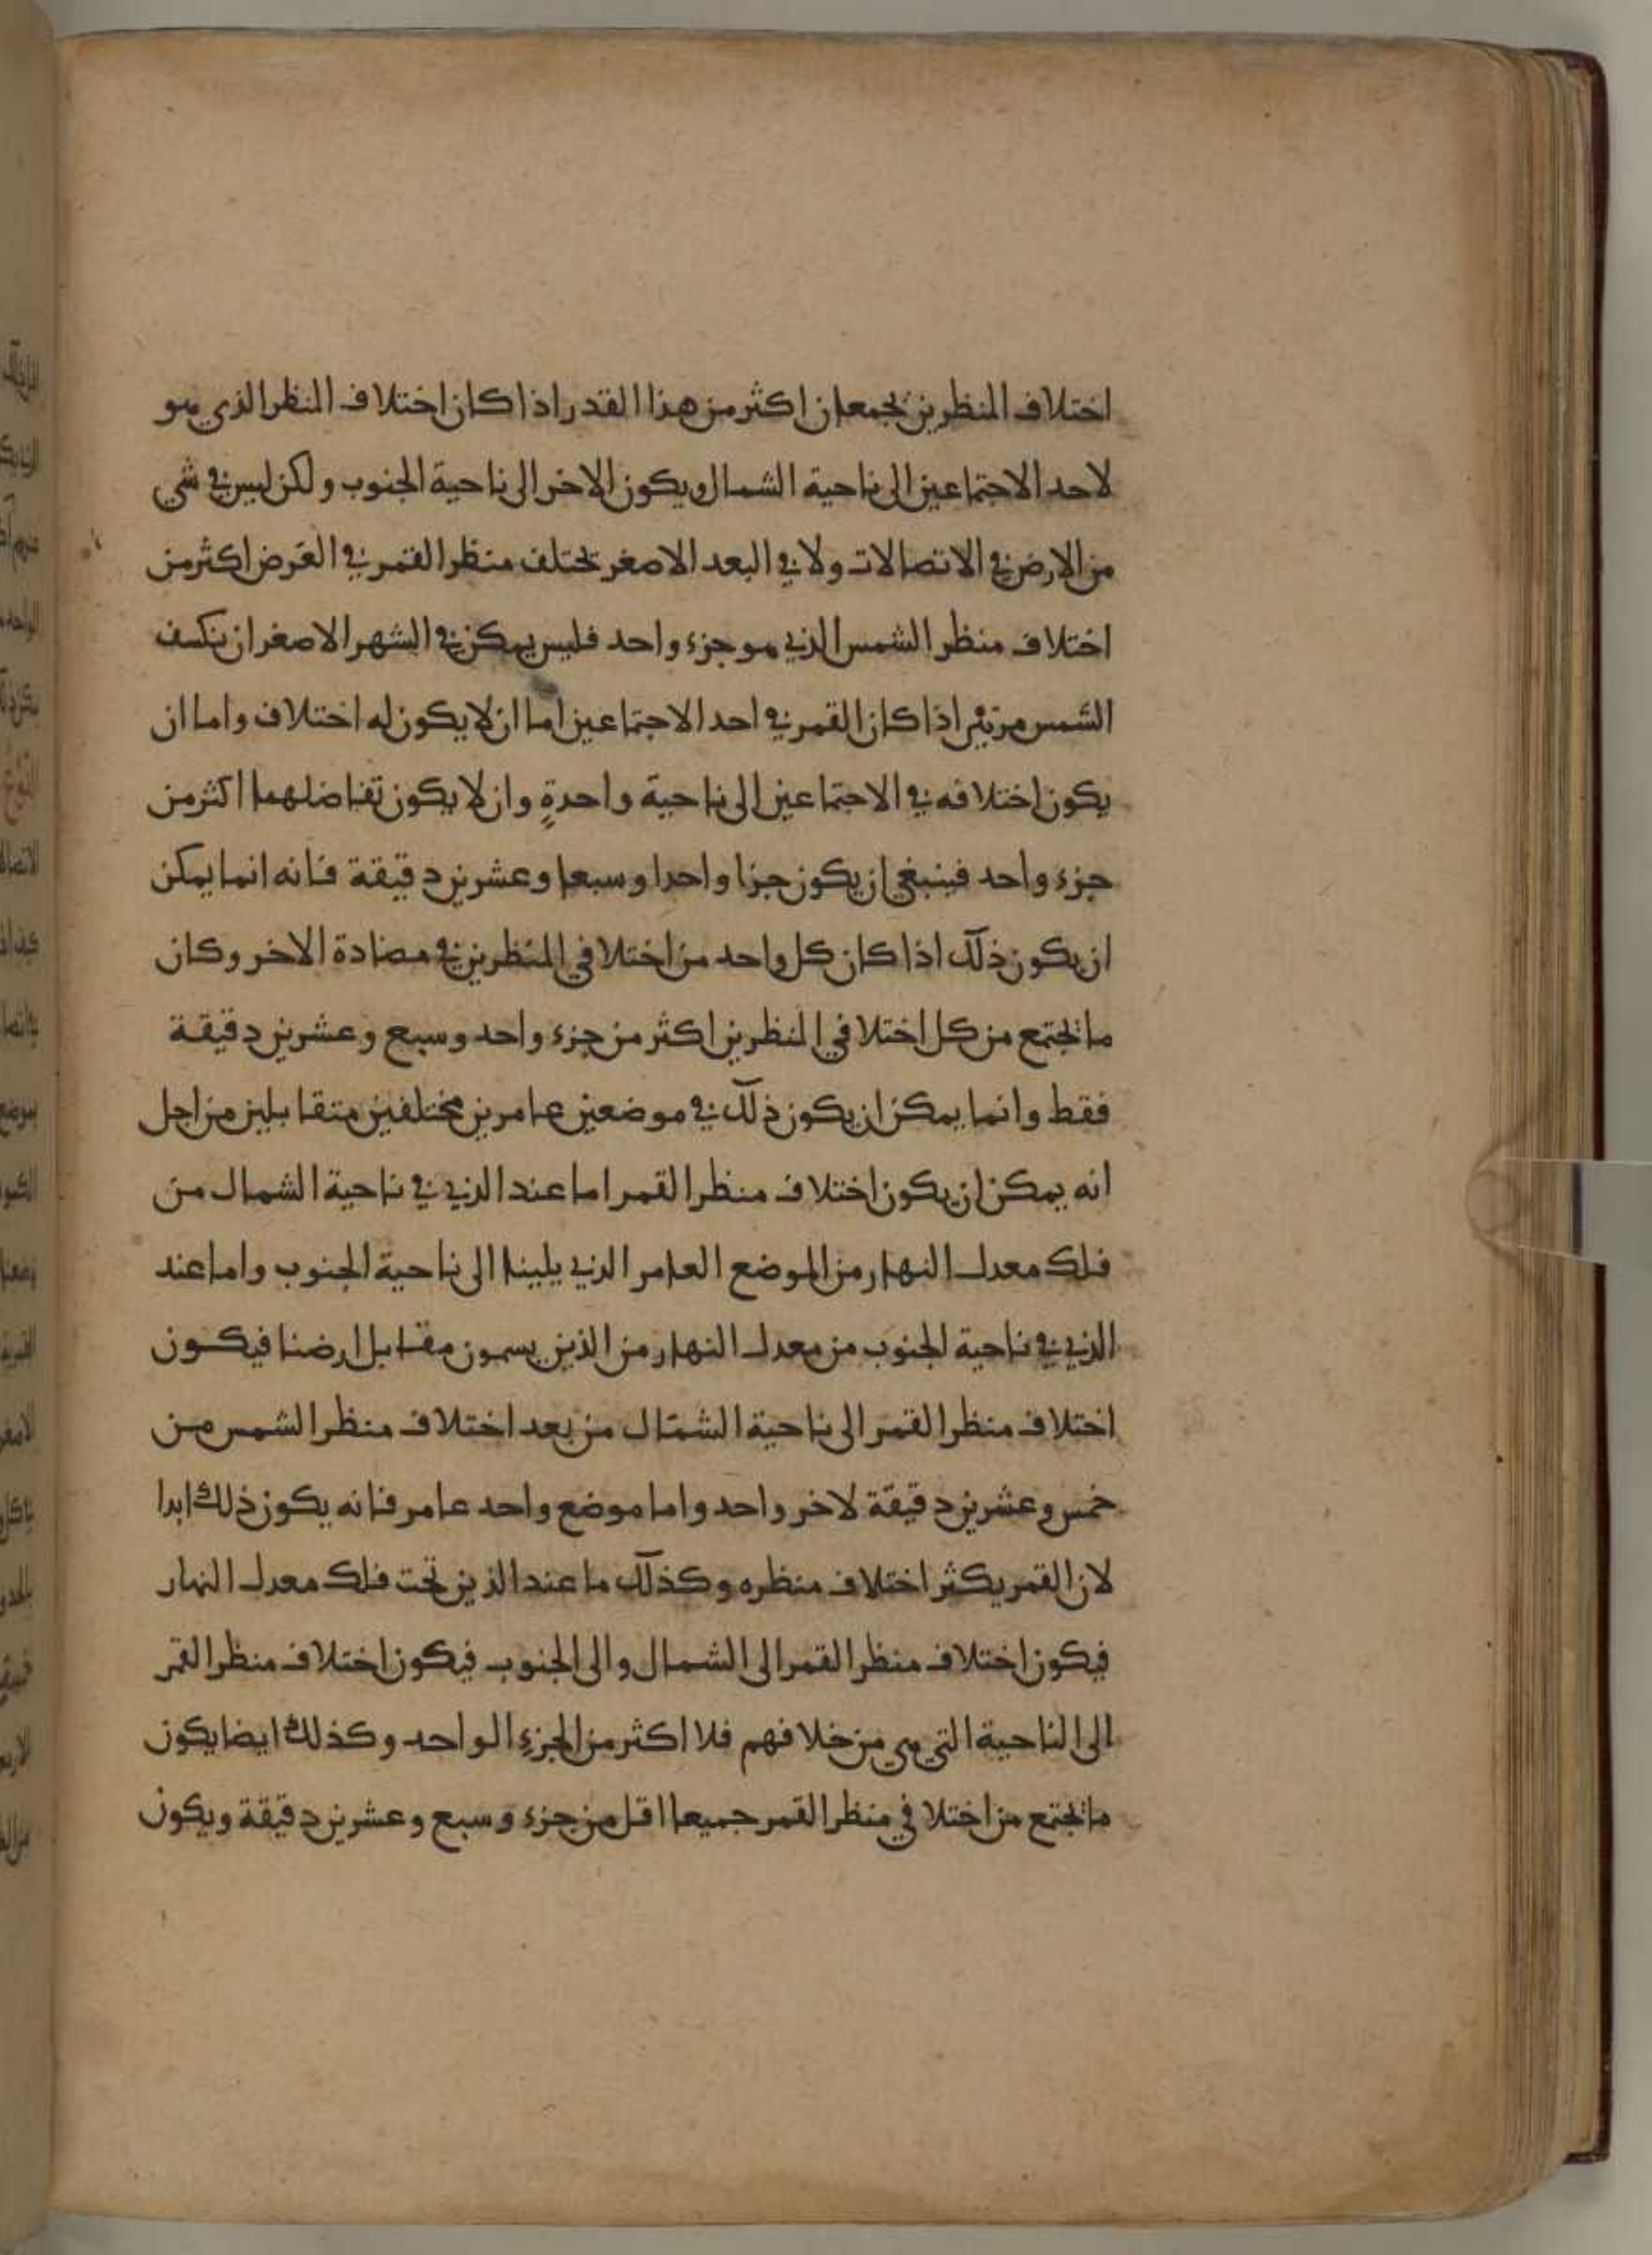 اختلاف المنظرين يجمعان اكثر من هذا القدر اذا كان اختلاف المنظر الذي هو
لاحد الاجتماعين الى ناحية الشمال ويكون الاخر الى ناحية الجنوب ولكن ليس في شي
من الارض في الاتصالات ولا في البعد الاصغر تختلف منظر القمر في العرض اكثر من
اختلاف منظر الشمس الذي هو جزء واحد فليس يمكن في الشهر الاصغر ان ينكسف
الشمس مرتين اذا كان القمر في احد الاجتماعين اما ان لا يكون له اختلاف واما ان
يكون اختلافه في الاجتماعين الى ناحية واحدةٍ وان لا يكون تفاضلهما اكثر من
جزء واحد فينبغي ان يكون جزا واحدا وسبعا وعشرين دقيقة فانه انما يمكن
ان يكون ذلك اذا كان كل واحد من اختلافي المنظرين في مضادة الاخر وكان
ما تجتمع من كل اختلافي المنظرين اكثر من جزء واحد وسبع وعشرين دقيقة
فقط وانما يمكن ان يكون ذلك في موضعين عامرين مختلفين متقابلين من اجل
انه يمكن ان يكون اختلاف منظر القمر اما عند الذي في ناحية الشمال من
فلك معدل النهار من الموضع العامر الذي يلينا الى ناحية الجنوب واما عند
الذي في ناحية الجنوب من معدل النهار من الذين يسمون مقابل ارضنا فيكون
اختلاف منظر القمر الى ناحية الشمال من بعد اختلاف منظر الشمس من
خمس وعشرين دقيقة لاخر واحد واما موضع واحد عامر فانه يكون ذلك ابدا
لان القمر يكثر اختلاف منظره وكذلك ما عند الذين تحت فلك معدل النهار
فيكون اختلاف منظر القمر الى الشمال والى الجنوب فيكون اختلاف منظر القمر
الى الناحية التي هي من خلافهم فلا اكثر من الجزءِ الواحد وكذلك ايضا يكون
ما تجتمع من اختلافي منظر القمر جميعا اقل من جزء وسبع وعشرين دقيقة ويكون